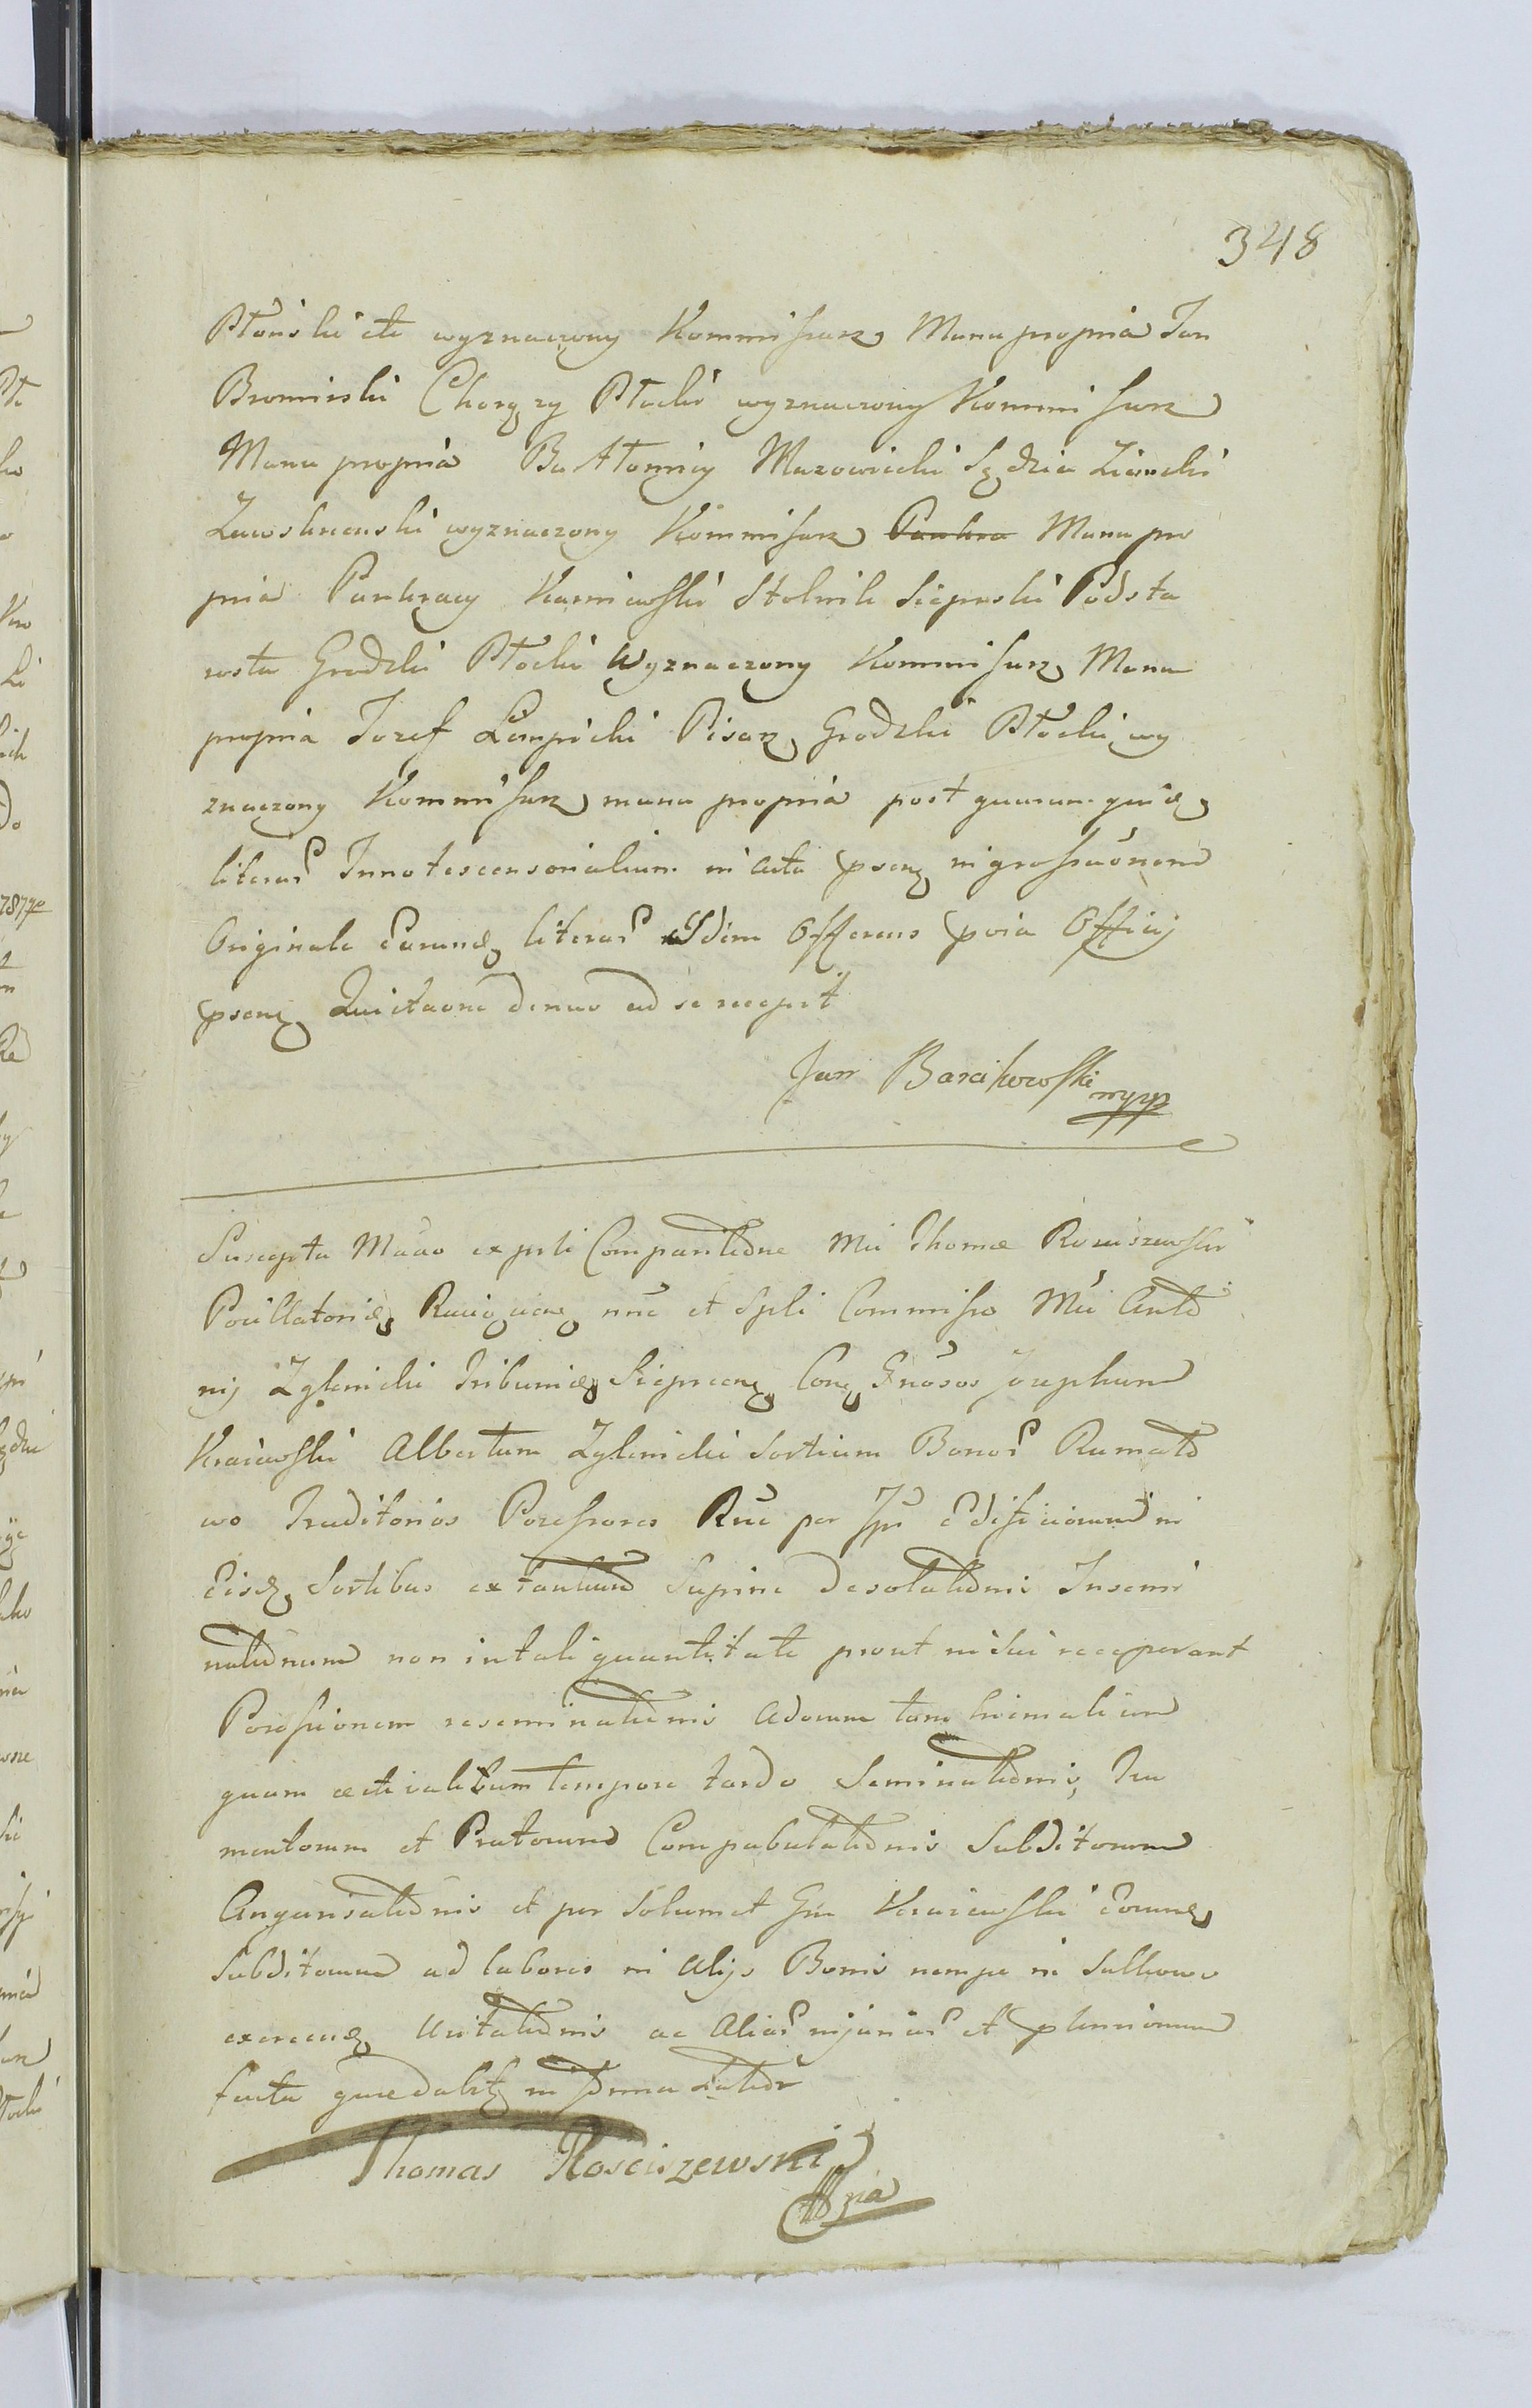 348
Płoński etc wyznaczony Kommissarz Manu propria Jan
Bromirski Chorąży Płocki wyznaczony Kommissarz
Manu propria Bartłomiey Mazowiecki Sędzia Ziemski
Zawskrzenski wyznaczony Kommisarz Pankra Manu pro
pria Pankracy Karniewski Stolnik Sieprski Podsta
rosta Grodzki Płocki Wyznaczony Kommissarz Manu
propria Jozef Lempicki Pisarz Grodzki Płocki wy
znaczony Kommissarz manu propria post quarumquid
literar Innotescensorialium in acta psen ingrossaonem
Originale Earund literar Idem Offerens pvia Officij
psen Quietaone denuo ad se recepit
Jan Barcikowski mpp
Suscepta Mãao ex psli Comparitione Mci Thomæ Rosciszewski
Pocillatorid Raciązien nñc et Spli Commisso Mci Anto
nij Zglenicki Tribunid Sieprcen Con Gnosos Josephum
Kraiewski Albertum Zglenicki Sortium Bonor Rumoto
wo Traditorios Possessores Rñe per Ips Edificiorum in
Eisd Sortibus extantium Supine desolationis Insemi
nationum non in tali quantitate prout in sui receperant
Possessionem reseminationis Adorum tam hiemalium
quam æstivalium tempore tardo Seminationis, Fru
mentorum et Pratorum Compabulationis Subditorum
Angarisationis et per Solumet Gm Kraiewski Eorund
Subditorum ad labores in Alijs Bonis nempe in Sulkowo
exercend Usitationis ac Aliar injuriar et pleniorum
facta quæ dabit in
Thomas Rosciszewski